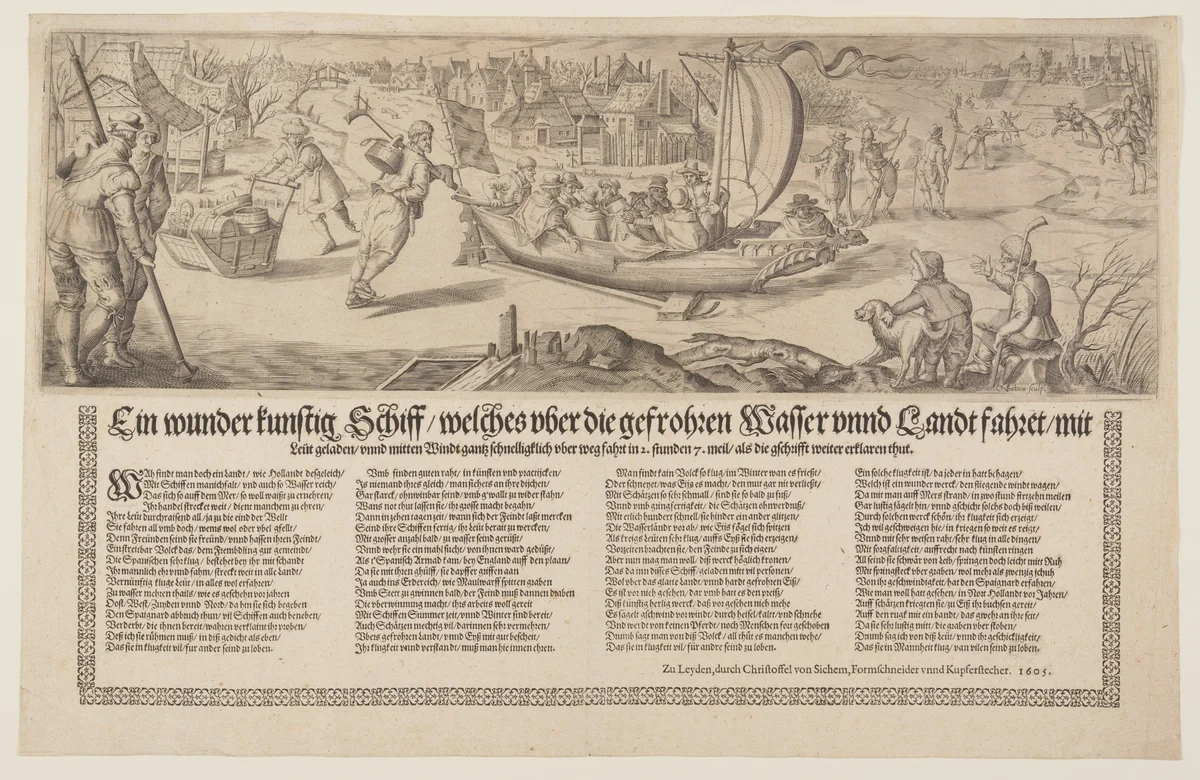 Sichem sculp.
Ein wunder kunstig Schiff / welches vber die gefrohren Wasser vnnd Landt fahret / mit
Leüt geladen / vnnd mitten Windt gantz schnelligklich vber weg fahrt in 2. stunden 7. meil / als die gschrifft weiter erklaren thut.
WAh findt man doch ein Landt / wie Hollandt desgleich /
Mit Schiffen manichfalt / vnd auch so Wasser reich /
Das sich so auff dem Mer / so woll waißt zu ernehren /
Ihr handel strecket weit / dient manchem zu ehren /
Ihre Leüt durchraisend all / ja zu die eind der Wellt
Sie fahren all vmb doch / wems wol oder vbel gfelt /
Denn Freünden seind sie freünd / vnnd hassen ihren Feindt /
Ein streitbar Volck das / dem Frembdling gut gemeindt /
Die Spanischen sehr klug / bestehet bey ihr mit schandt
Ihr manlich ehr vnnd fahn / streckt weit in alle Landt /
Vernünfftig kluge Leüt / in alles wol erfahren /
Zu wasser mehren thails / wie es geschehn vor jahren
Oost / West / Zuyden vnnd Nord / da hin sie sich begeben
Den Spaignard abbruch thun / vil Schiffen auch beneben /
Verderbt / die ihnen bereit / waher klatt am ihr proben /
Deß ich sie rühmen muß / in diß gedicht als eben /
Das sie in klugkeit vil / für ander seind zu loben.
Vmb finden guten raht / in künsten vnd practijcken /
Is niemand ihres gleich / man siehets an ihre dijchen /
Gar starck / ohnwinbar seind / vmb g'wallt zu wider stahn /
Wans not thut lassen sie / ihr grosse macht begahn /
Dann in zehen tagen zeit / wann sich der Feindt lasst mercken
Seind ihr Schiffen fertig / ihr Leüt berait zu wercken /
Mit grosser anzahl bald / zu wasser seind gerüst /
Vnnd wehr sie ein mahl sucht / von ihnen ward gedüßt /
Als t'Spanisch Armad kam / bey England auff den plaan /
Da sie mit ihren ghülff / sie dapffer griffen aan
Ja auch ins Erdereich / wie Maulwarff spitten graben
Vmb Steet zu gwinnen bald / der Feind muß dannen draben
Die vberwinnung macht / ihrs arbeits woll gereit
Mit Schiffen Summer zeit / vnnd Winter sind bereit /
Auch Schätzen mechtig vil / darinnen sehr vornehmen /
Vbers gefrohren Landt / vnnd Eyß mit gut bescheit /
Ihr klugkeit vnnd verstandt / muß man hie innen ehren.
Man findt kain Volck so klug / im Winter wan es frießt /
Oder schneyet / was Eijs es macht / den mut gar nit verließt /
Mit Schärzen so sehr schmall / sind sie so bald zu fuß /
Vnnd vmb gringfertigkeit / die Schärzen ohn verdruß /
Mit etlich hundert schnell / sie hinder ein ander glitzen /
Die Wasserlandt vor ohn / wie Eiß fögel sich spitzen
Als kregs Leüten sehr klug / auffs Eyß sie sich erzeigen /
Vorzeiten brachten sie / den Feinde zu sich eigen /
Aber nun mag man woll / diß werck höglich kronen /
Das da inn disses Schiff / geladen mit vil personen /
Wol vber das glatte Landt / vnnd hardt gefrohren Eiß /
Es ist vor nieh gesehen / dar vmb hatt es den preiß /
Diß künstig herlig werck / daß vor gesehen nieh mehe
Es saglet gschwind vor wind / durch heisel / kalt / vnd schnehe
Vnd werd vor keinen Pferdt / noch Menschen fort geschoben
Drumb sagt man von diß Volck / all thut es manchen wehe /
Das sie in klugkeit vil / für andre seind zu loben.
Ein solche klugkeit ist / da jeder in hatt behagen /
Welch ist ein wunder werck / den fliegende windt wagen /
Da mit man auff Mers strand / in zwo stund firtzehn meilen
Gar lustig fägelt hin / vnnd gschicht solchs doch diß weilen /
Durch solchen werck schön / ihr klugkeit sich erzeigt /
Ich wil gschwoygen hie / in kriegen so weit es reigt /
Vnnd mit sehr weisen raht / sehr klug in alle dingen /
Mit sorgfaltigkeit / auffrecht nach künsten ringen
All seind sie schwär von Leib / springen doch leicht mit Ruh
Mit springstock vber graben / wol mehr als zwenzig schuh
Von ihr geschwindigkeit / hat den Spaignard erfahren /
Wie man woll hatt gesehen / in Nort Hollandt vor Jahren /
Auff schätzen kriegen sie / zu Eiß ihr buchsen gereit /
Auff den rugk mit ein bandt / das gwehr an ihre seit /
Da sie sehr lustig mit / die graben vber stoben /
Drumb sag ich von diß Leüt / vnnd ihr geschickligkeit /
Das sie in Mannheit klug / van vilen seind zu loben.
Zu Leyden, durch Christoffel von Sichem, Formschneider vnnd Kupferstecher. 1605.